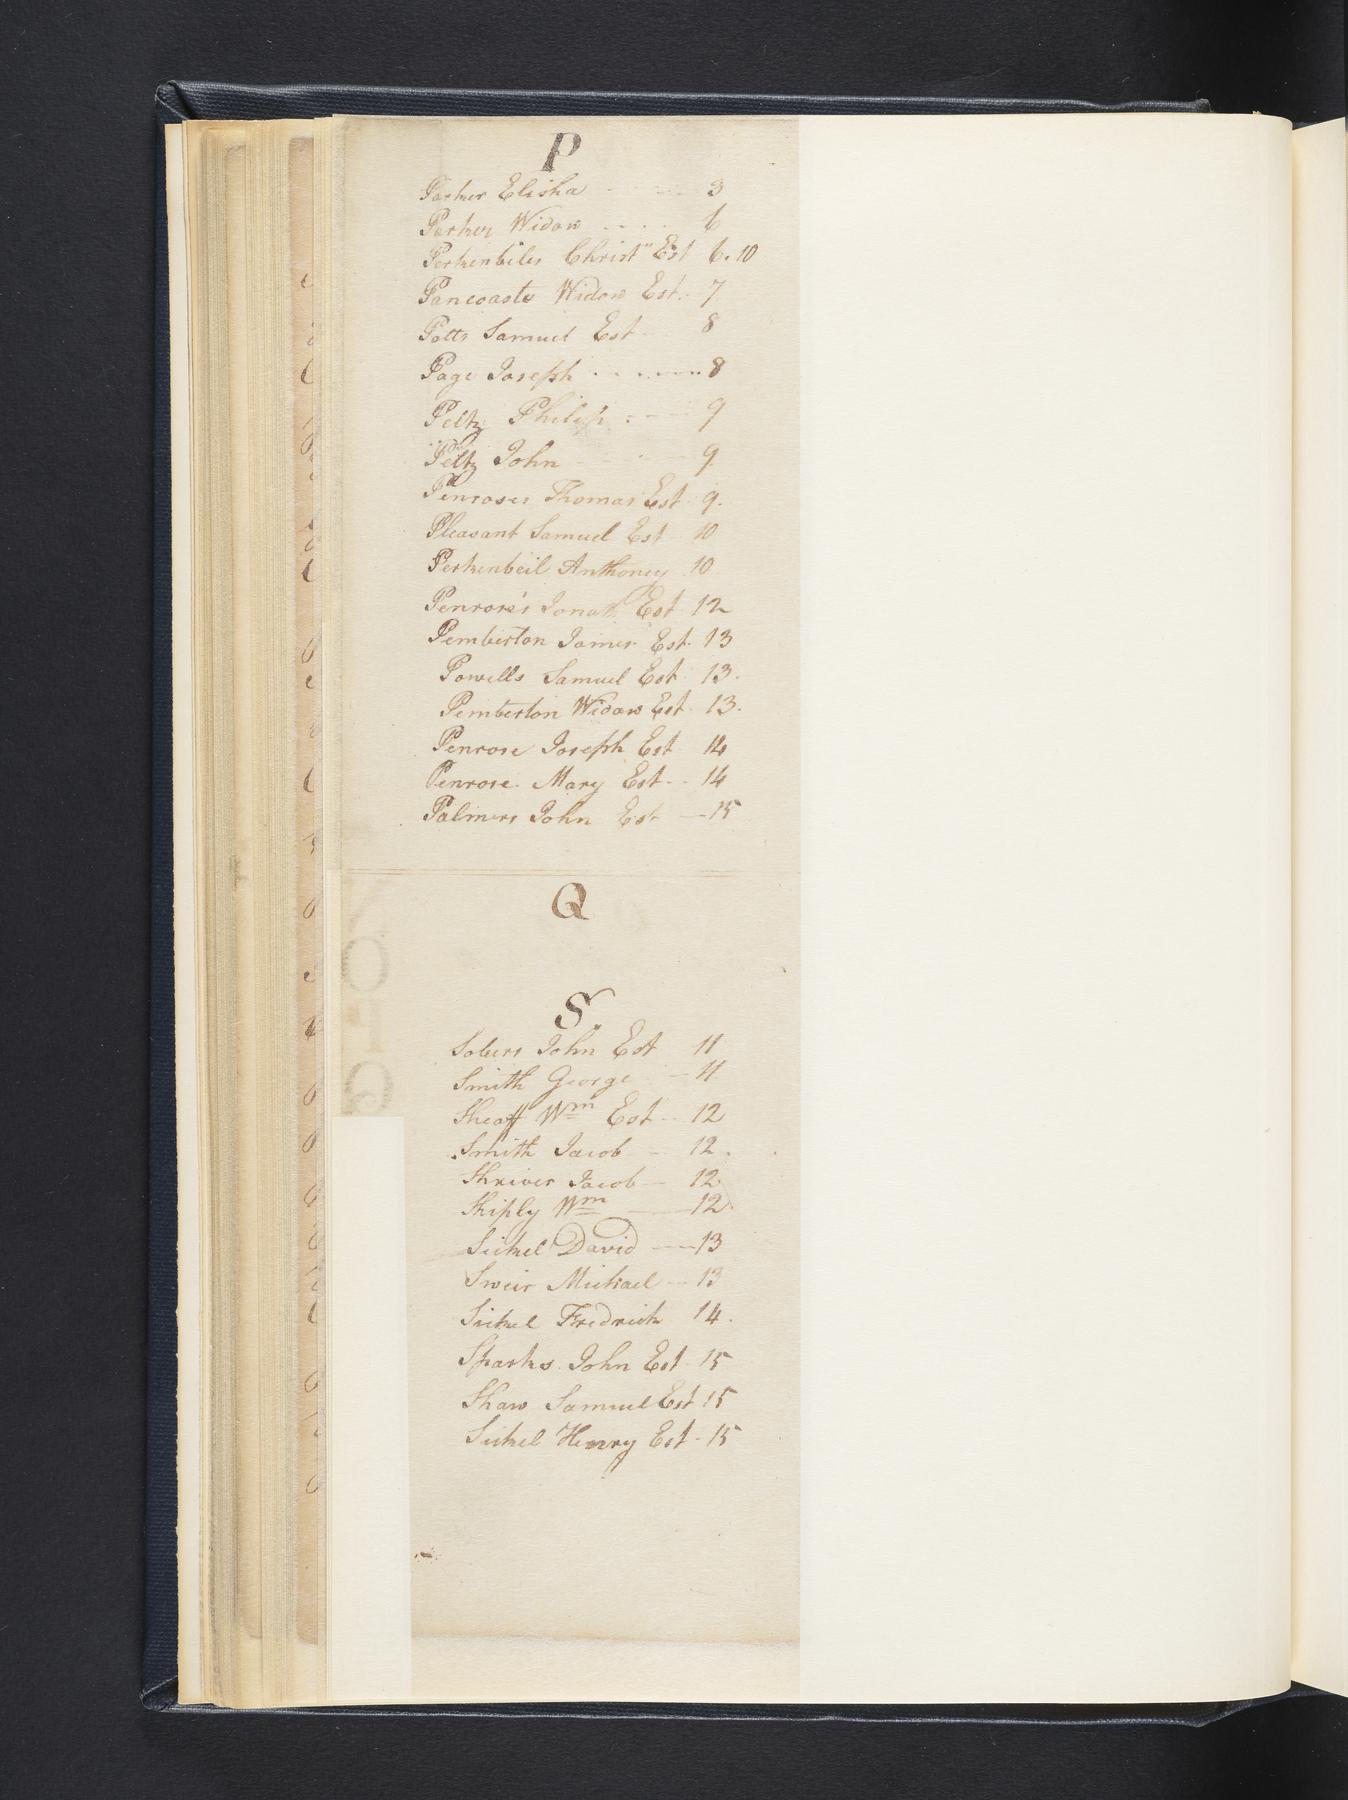 P
Parker Elisha - - - - - 3
Parker Widow - - - - 6
Perkenbiles Christn Est 6. 10
Pancoasts Widow Est. - 7
Potts Samuel Est - 8
Page Joseph - - - - - - 8
Peltz Philip - - - 9
Peltz John - - - 9
Penroses Thomas Est 9.
Pleasant Samuel Est 10
Perkenbeil Anthoney 10
Penrose's Jonath Est 12
Pemberton James Est. 13
Powells Samuel Est 13.
Pemberton Widow Est. 13.
Penrose Joseph Est 14
Penrose Mary Est - - 14
Palmers John Est — 15
Q
S
Sobers John Est 11
Smith George — 11
Sheaff Wm Est - - 12
Smith Jacob - 12.
Shriver Jacob — 12
Shiply Wm — 12
Sickel David — 13
Sweir Michael - - 13
Sickel Fredrick 14.
Sparks John Est 15
Shaw Samuel Est 15
Sickel Henry Est - 15